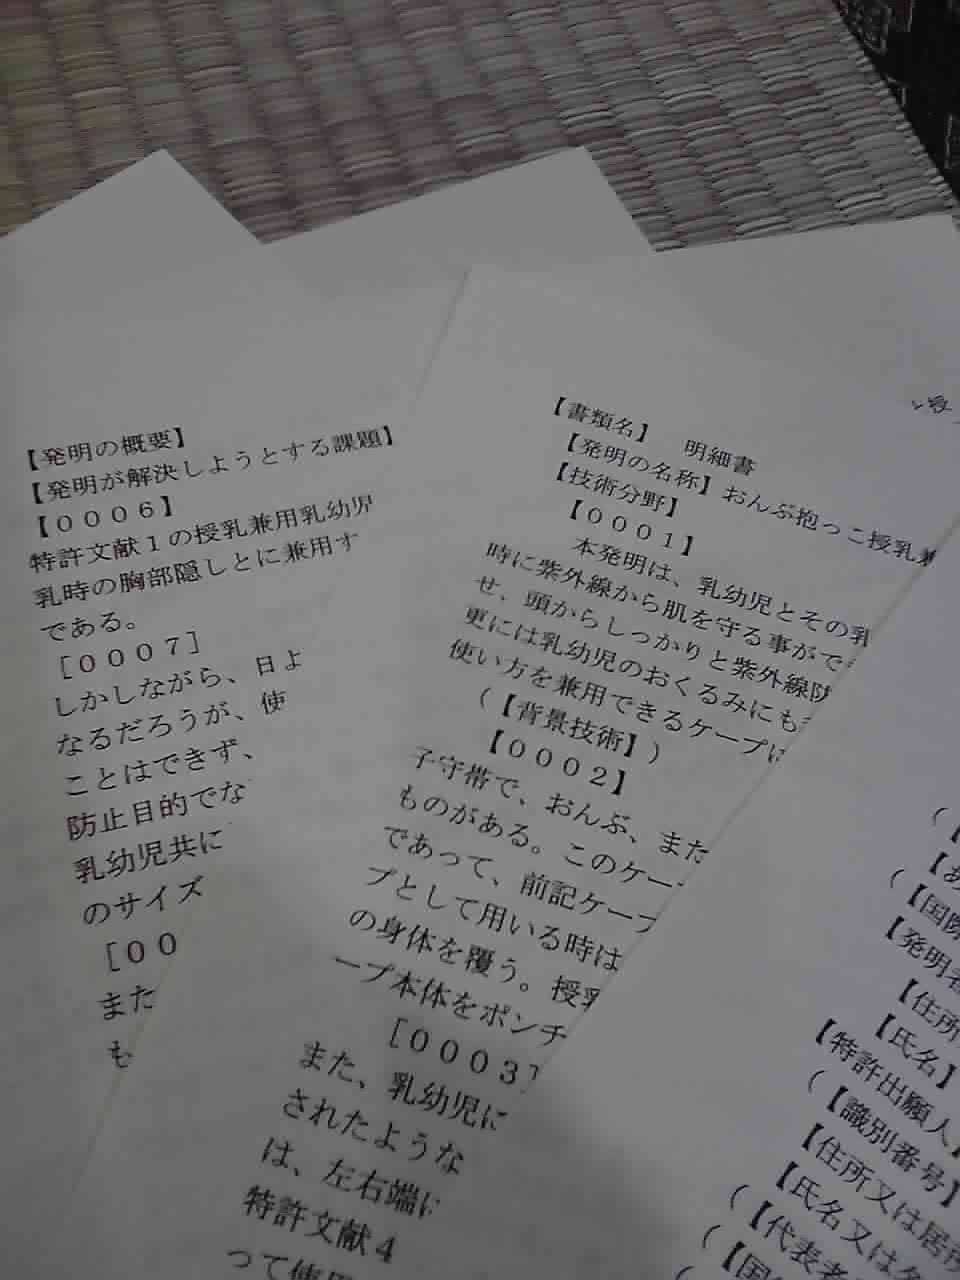 【発明の概要】
【発明が解決しようとする課題】
【0006】
特許文献1の授乳兼用乳幼児
乳時の胸部隠しとに兼用す
である。
[0007]
しかしながら、日よ
なるだろうが、使
ことはできず、
防止目的でな
乳幼児共に
のサイズ
[00
また
も
【書類名】 明細書
【発明の名称】おんぶ抱っこ授乳兼
【技術分野】
【0001】
本発明は、乳幼児とその乳
時に紫外線から肌を守る事がで
せ、頭からしっかりと紫外線防
更には乳幼児のおくるみにも
使い方を兼用できるケープに
(【背景技術】)
【0002】
子守帯で、おんぶ、また
ものがある。このケー
であって、前記ケープ
プとして用いる時は
の身体を覆う。授乳
ープ本体をポンチ
[0003]
また、乳幼児に
されたような
は、左右端に
特許文献4
って使用
(【
【あ
(【国際
【発明者
【住所
【氏名】
【特許出願人】
(【識別番号】
【住所又は居所
【氏名又は名
(【代表者
(【国